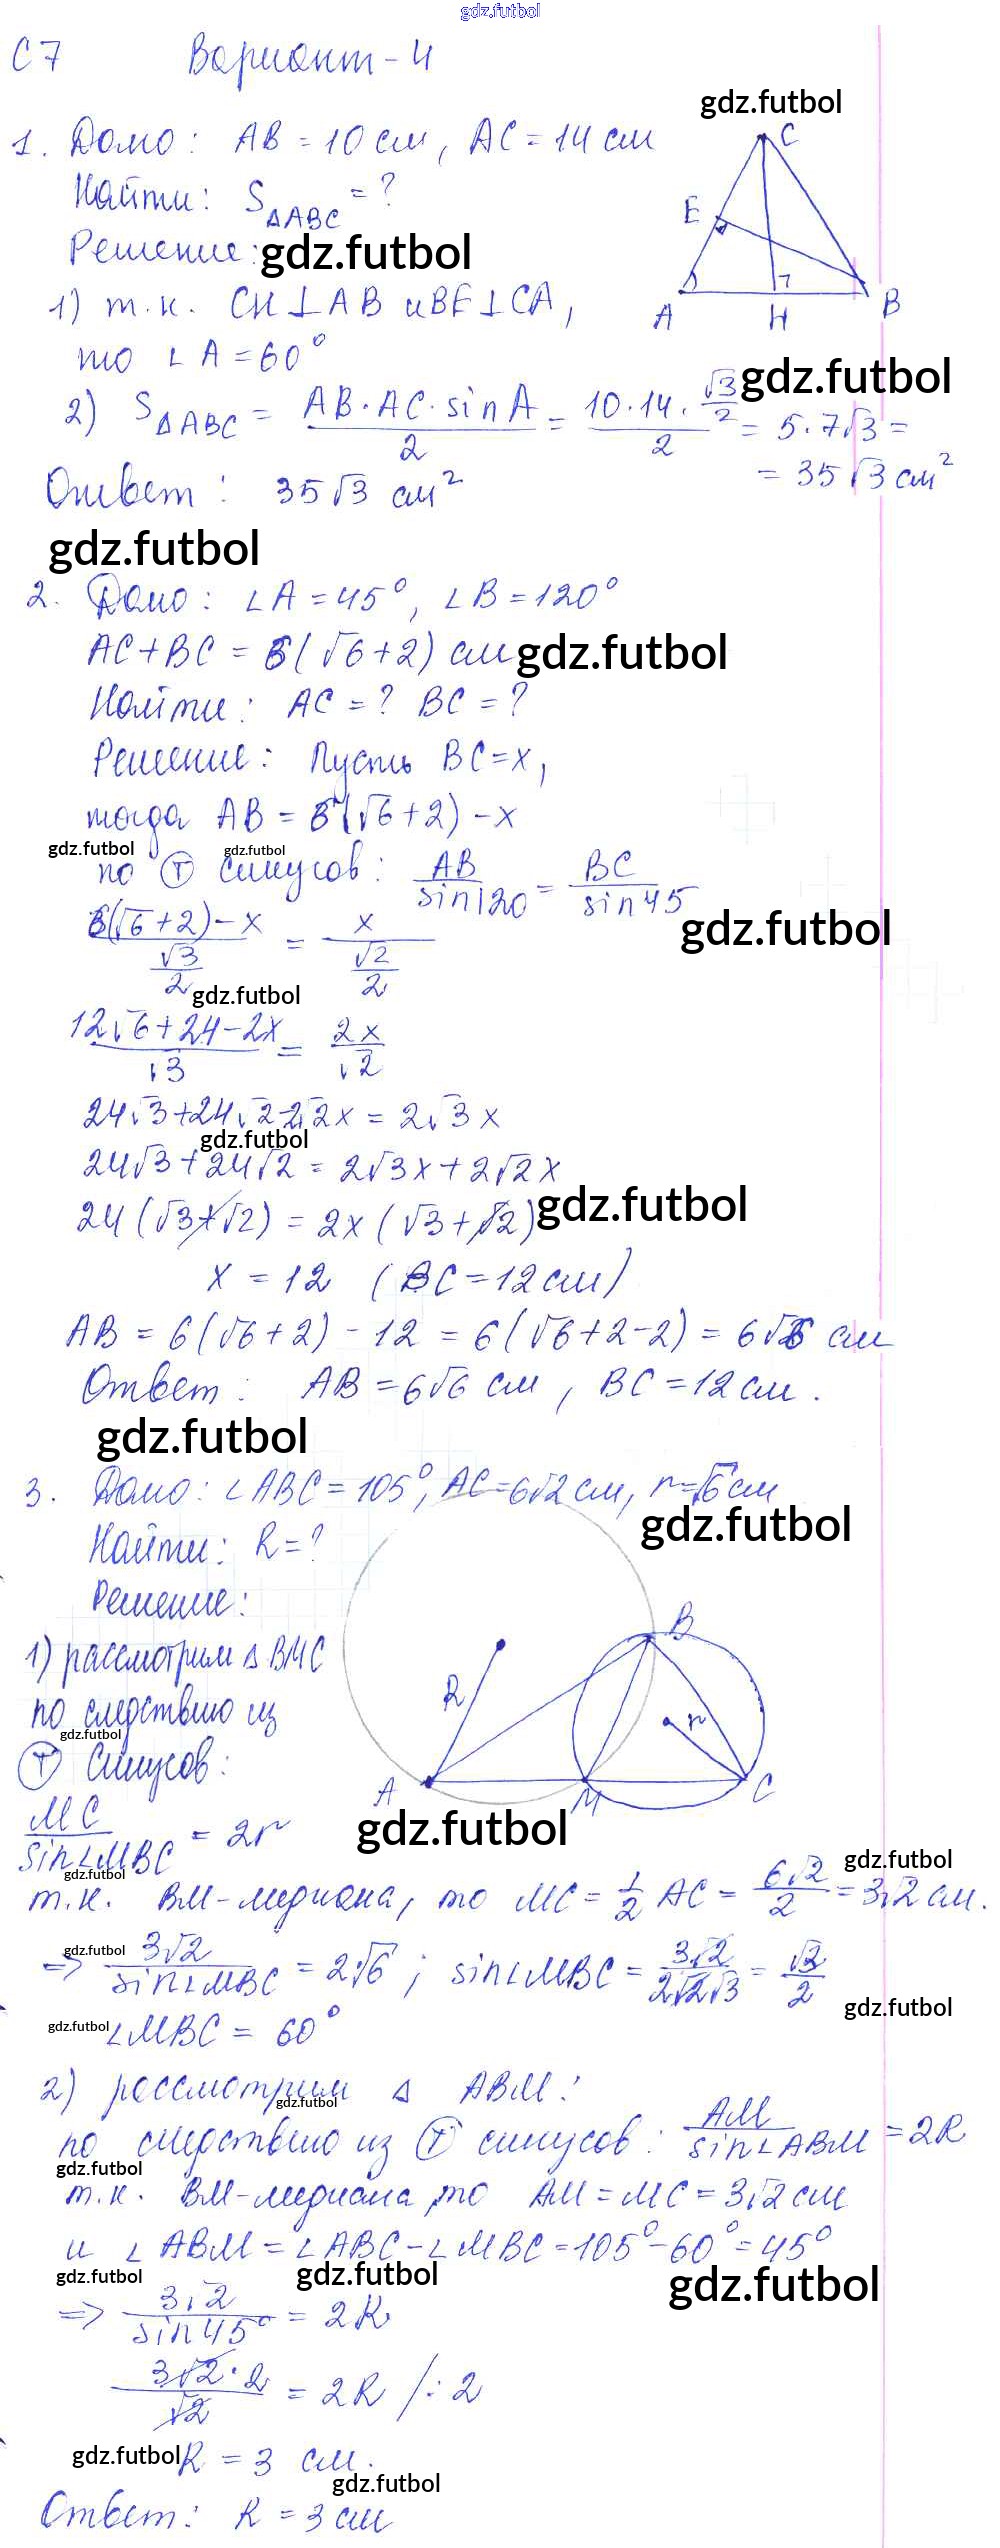 gdz.futbol
С7 Вариант-4
gdz.futbol
1. Дано: AB = 10 см, AC = 14 см
C
Найти: S△ABC = ?
E
Решение: gdz.futbol
1) т.к. CH⊥AB и BE⊥CA,
A H B
то ∠A = 60°
gdz.futbol
2) S△ABC = AB·AC·sin A / 2 = 10·14·√3/2 / 2 = 5·7√3 =
= 35√3 см²
Ответ: 35√3 см²
gdz.futbol
2. Дано: ∠A = 45°, ∠B = 120°
AC + BC = 6(√6+2) см gdz.futbol
Найти: AC = ? BC = ?
Решение: Пусть BC = x,
тогда AB = 6(√6+2) - x
gdz.futbol gdz.futbol
по Т синусов: AB/sin 120 = BC/sin 45
gdz.futbol
6(√6+2)-x / √3/2 = x / √2/2
gdz.futbol
12√6+24-2x / √3 = 2x / √2
24√3+24√2-2√2x = 2√3x
gdz.futbol
24√3+24√2 = 2√3x+2√2x
24(√3+√2) = 2x(√3+√2) gdz.futbol
x = 12 (BC = 12 см)
AB = 6(√6+2) - 12 = 6(√6+2-2) = 6√6 см
Ответ: AB = 6√6 см, BC = 12 см.
gdz.futbol
3. Дано: ∠ABC = 105°, AC = 6√2 см, r = √6 см
gdz.futbol
Найти: R = ?
Решение:
B
1) рассмотрим △BMC
R
r
по следствию из
gdz.futbol
Т синусов:
A M C
gdz.futbol
MC/sin∠MBC = 2r
gdz.futbol
gdz.futbol
т.к. BM-медиана, то MC = 1/2 AC = 6√2/2 = 3√2 см.
gdz.futbol
=> 3√2/sin∠MBC = 2√6; sin∠MBC = 3√2/2√2√3 = √3/2
gdz.futbol
gdz.futbol
∠MBC = 60°
2) рассмотрим △ ABM:
gdz.futbol
по следствию из Т синусов: AM/sin∠ABM = 2R
gdz.futbol
т.к. BM-медиана, то AM = MC = 3√2 см
и ∠ABM = ∠ABC - ∠MBC = 105° - 60° = 45°
gdz.futbol gdz.futbol gdz.futbol
=> 3√2/sin 45° = 2R
3√2·2/√2 = 2R /:2
gdz.futbol
R = 3 см.
gdz.futbol
Ответ: R = 3 см